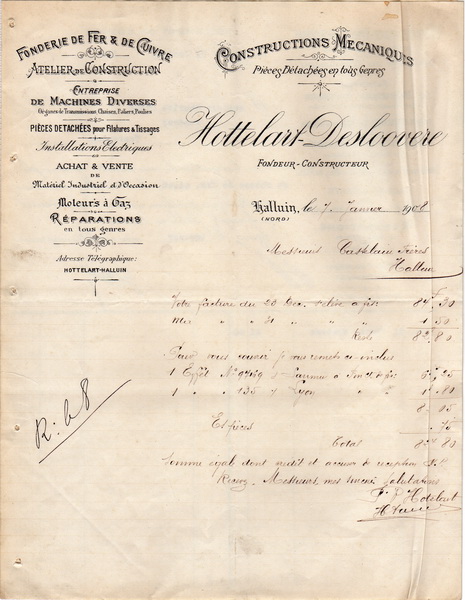 FONDERIE DE FER & DE CUIVRE
ATELIER DE CONSTRUCTION
ENTREPRISE
DE MACHINES DIVERSES
Organes de Transmissions, Chaises, Paliers, Poulies
PIÈCES DÉTACHÉES pour Filatures & Tissages
Installations Electriques
ACHAT & VENTE
DE
Matériel Industriel et d'Occasion
Moteurs à Gaz
RÉPARATIONS
en tous genres
Adresse Télégraphique:
HOTTELART-HALLUIN
CONSTRUCTIONS MÉCANIQUES
Pièces Détachées en tous Genres
Hottelart-Desloovere
FONDEUR-CONSTRUCTEUR
Halluin, le 7 Janvier 1908
(NORD)
Messieurs Castelain Frères
Halluin
Votre facture du 23 Dec.
Reste
vous couvrir je vous remets ci-inclus
1 Effet Nº
1 " " 135 Lyon
Espèces
Total
Somme égale dont crédit et accuser de réception
Recevez, Messieurs, mes sincères salutations